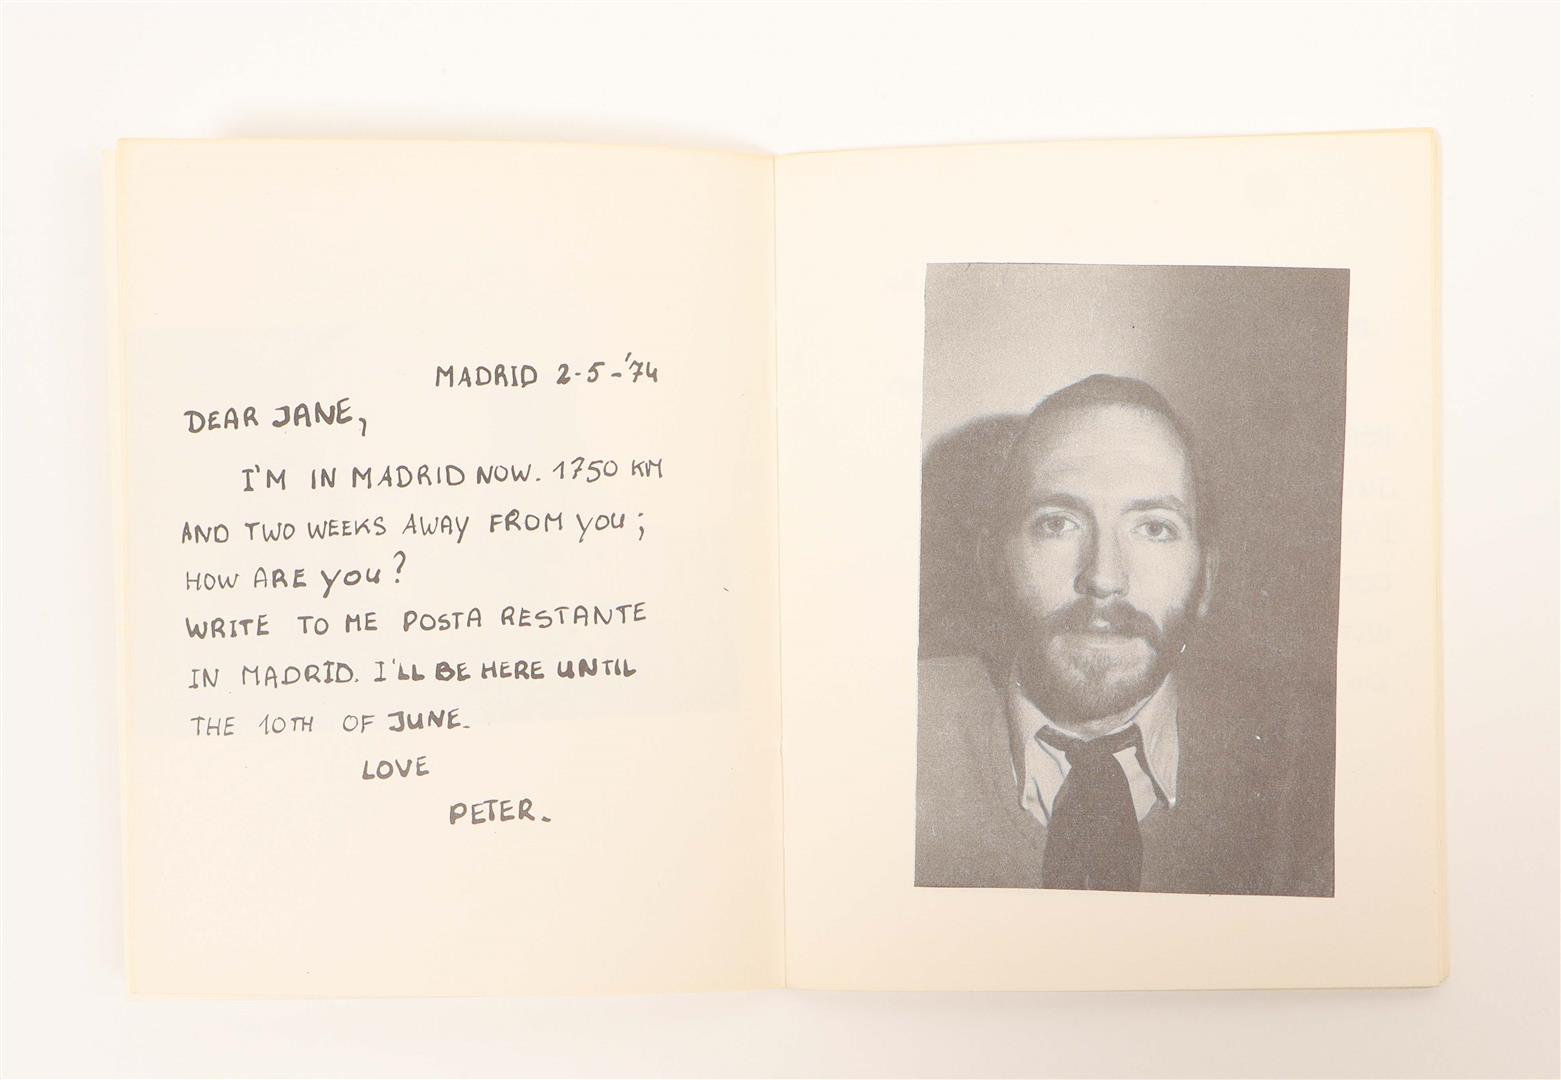 MADRID 2-5-'74
DEAR JANE,
I'M IN MADRID NOW. 1750 KM
AND TWO WEEKS AWAY FROM YOU;
HOW ARE YOU?
WRITE TO ME POSTA RESTANTE
IN MADRID. I'LL BE HERE UNTIL
THE 10TH OF JUNE.
LOVE
PETER.